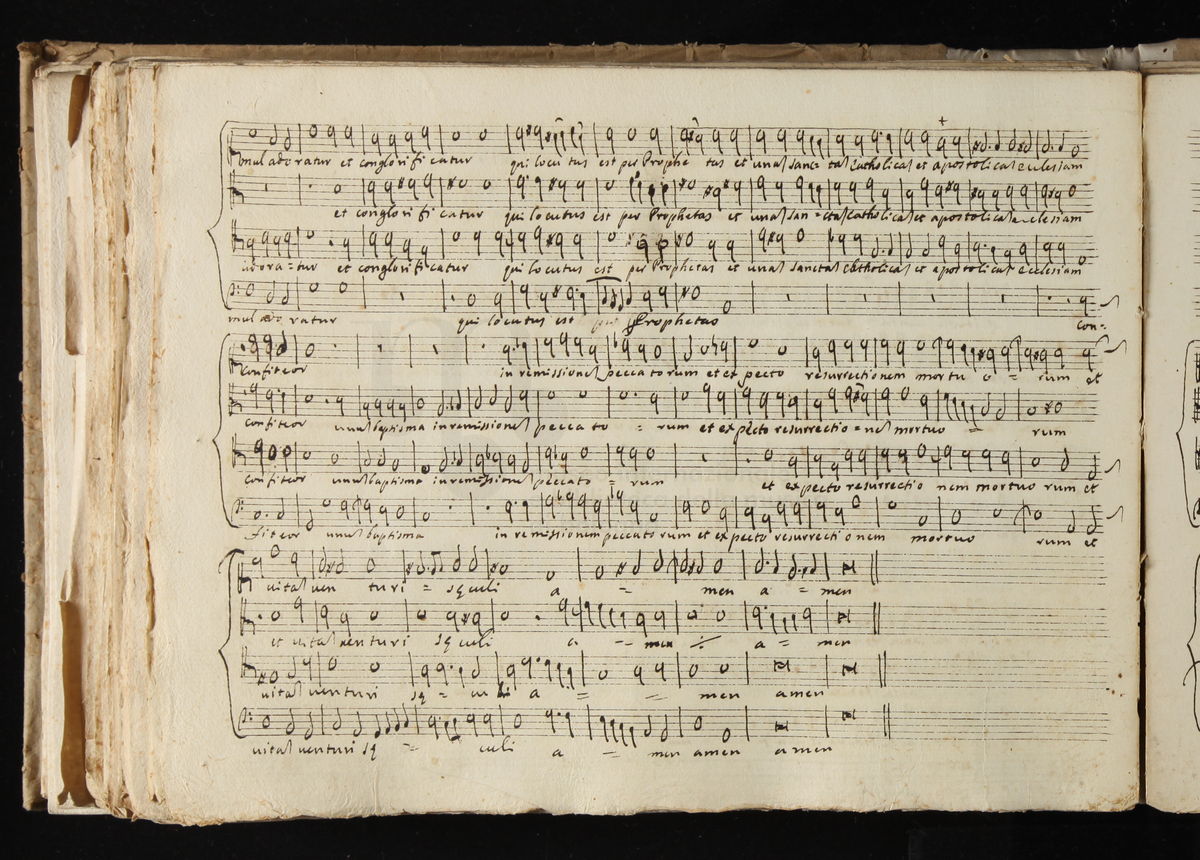 mul ado ratur et conglorifi catur qui locu tus est per Prophe tas et unaſ Sanc= taſ Catholicaſ et apostolicaſ ecclesiam
et conglori fi catur qui locutus est per Prophetas et unaſ San = ctaſ Catholicaſ et apostolicaſ ecclesiam
adora=tur et conglorifi catur qui locutus est per Prophetas et unaſ Sanctaſ Catholicaſ et apostolicaſ ecclesiam
mul ado ratur qui locutus est Prophetas Con=
Confiteor in remissioneſ pecca to rum et ex pecto resurrectionem mortu o = rum et
Confiteor unuſ baptisma in remissioneſ pecca to = rum et expecto resurrectio = neſ mortuo = rum
Confiteor unuſ baptisma in remissioneſ peccato = rum et expecto resurrectio nem mortuo rum et
fiteor unuſ baptisma in remissionem peccato rum et ex pecto resurrecti onem mortuo rum et
vitaſ ven turi = sęculi a = men a = men
et vitaſ venturi sę culi a = men ∴ a = men
vitaſ venturi sę = cu li a = = men amen
vitaſ venturi sę = culi a = men amen amen